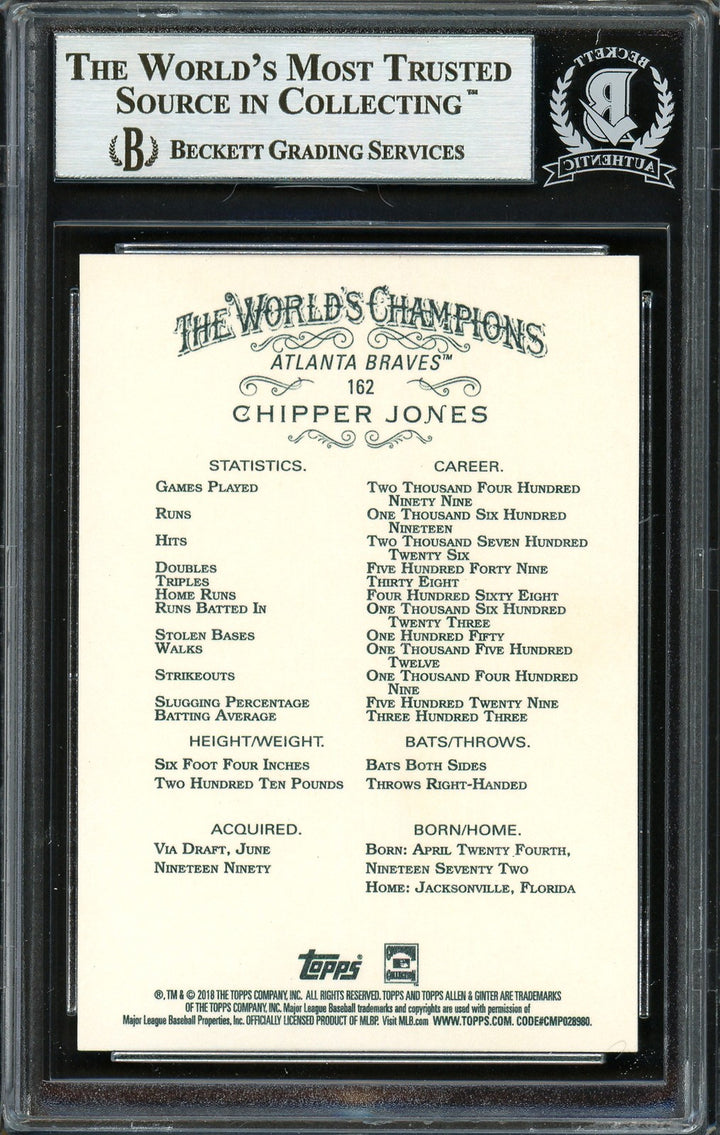 THE WORLD'S MOST TRUSTED
SOURCE IN COLLECTING™
B BECKETT GRADING SERVICES
BECKETT
B
AUTHENTIC
THE WORLD'S CHAMPIONS
ATLANTA BRAVES™
162
CHIPPER JONES
STATISTICS. CAREER.
GAMES PLAYED TWO THOUSAND FOUR HUNDRED
NINETY NINE
RUNS ONE THOUSAND SIX HUNDRED
NINETEEN
HITS TWO THOUSAND SEVEN HUNDRED
TWENTY SIX
DOUBLES FIVE HUNDRED FORTY NINE
TRIPLES THIRTY EIGHT
HOME RUNS FOUR HUNDRED SIXTY EIGHT
RUNS BATTED IN ONE THOUSAND SIX HUNDRED
TWENTY THREE
STOLEN BASES ONE HUNDRED FIFTY
WALKS ONE THOUSAND FIVE HUNDRED
TWELVE
STRIKEOUTS ONE THOUSAND FOUR HUNDRED
NINE
SLUGGING PERCENTAGE FIVE HUNDRED TWENTY NINE
BATTING AVERAGE THREE HUNDRED THREE
HEIGHT/WEIGHT. BATS/THROWS.
SIX FOOT FOUR INCHES BATS BOTH SIDES
TWO HUNDRED TEN POUNDS THROWS RIGHT-HANDED
ACQUIRED. BORN/HOME.
VIA DRAFT, JUNE BORN: APRIL TWENTY FOURTH,
NINETEEN NINETY NINETEEN SEVENTY TWO
HOME: JACKSONVILLE, FLORIDA
Topps
®, TM & © 2018 THE TOPPS COMPANY, INC. ALL RIGHTS RESERVED. TOPPS AND TOPPS ALLEN & GINTER ARE TRADEMARKS
OF THE TOPPS COMPANY, INC. Major League Baseball trademarks and copyrights are used with permission of
Major League Baseball Properties, Inc. OFFICIALLY LICENSED PRODUCT OF MLBP. Visit MLB.com WWW.TOPPS.COM. CODE#CMP028980.